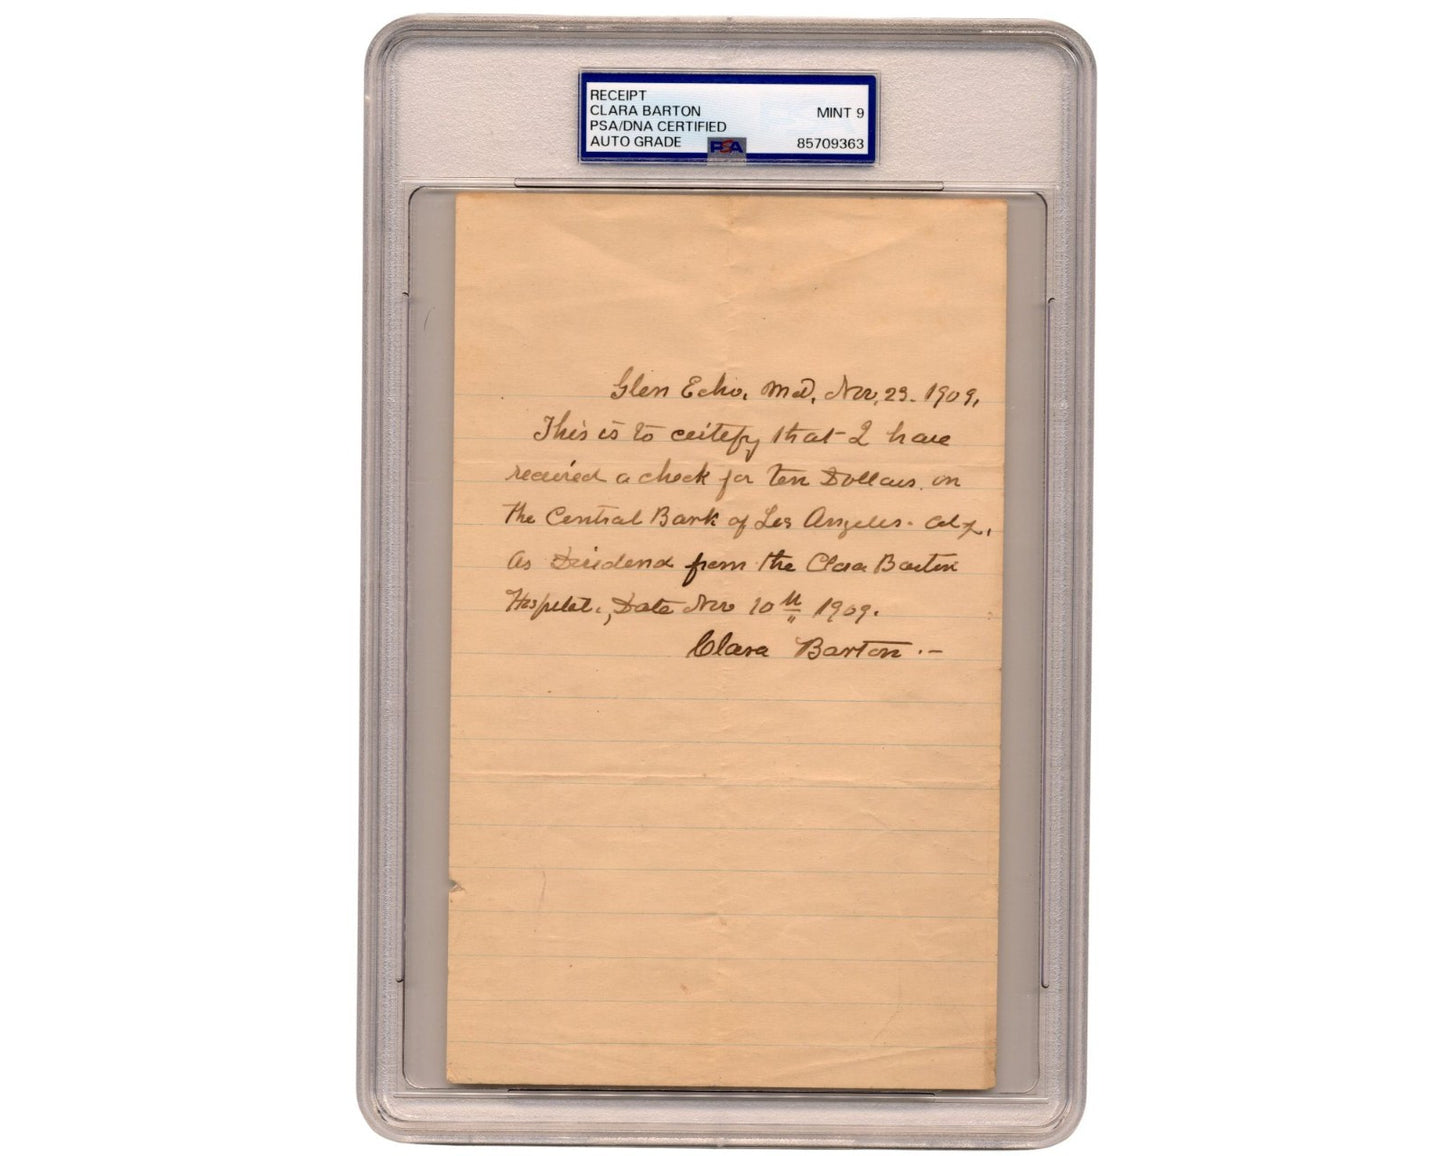 RECEIPT
CLARA BARTON
MINT 9
PSA/DNA CERTIFIED
AUTO GRADE
PSA
85709363
Glen Echo, Md, Nov, 23. 1909,
This is to certify that I have
received a check for Ten Dollars on
the Central Bank of Los Angeles.
as Dividend from the Clara Barton
Hospital., Date Nov 10th 1909.
Clara Barton.-